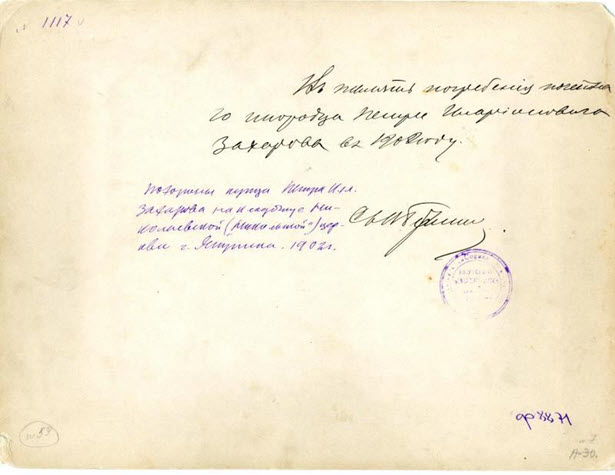 1117
Въ память погребенія почетна
го инородца Петра Иларіоновича
Захарова въ 1902 году.
Похороны купца Петра Ил.
Захарова на кладбище Ни-
колаевской (Никольской) цер-
кви г. Якутска. 1902 г.
53
А-30.